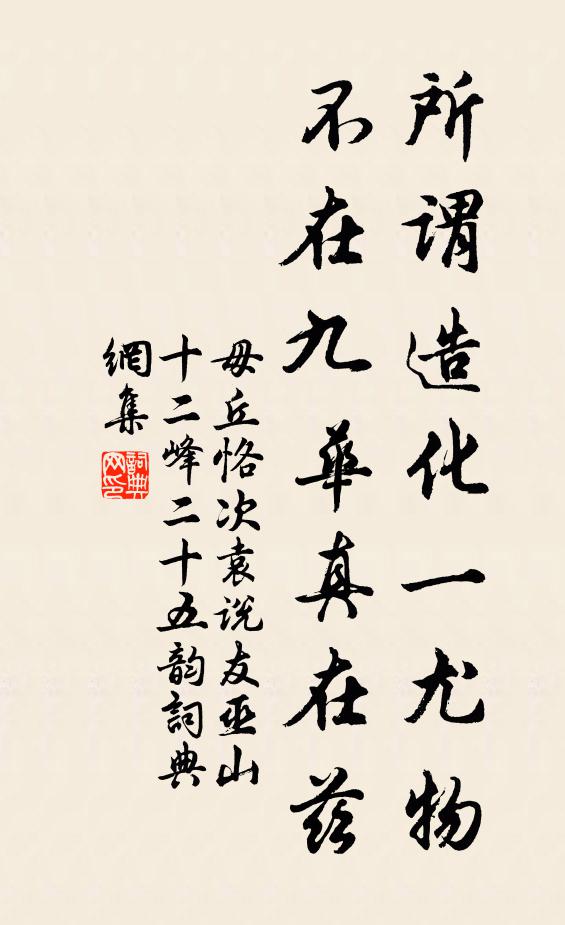 所谓造化一尤物
不在九華真在茲
毋丘恪次袁说友巫山
十二峰二十五韵詞典
網集
詞典
网印